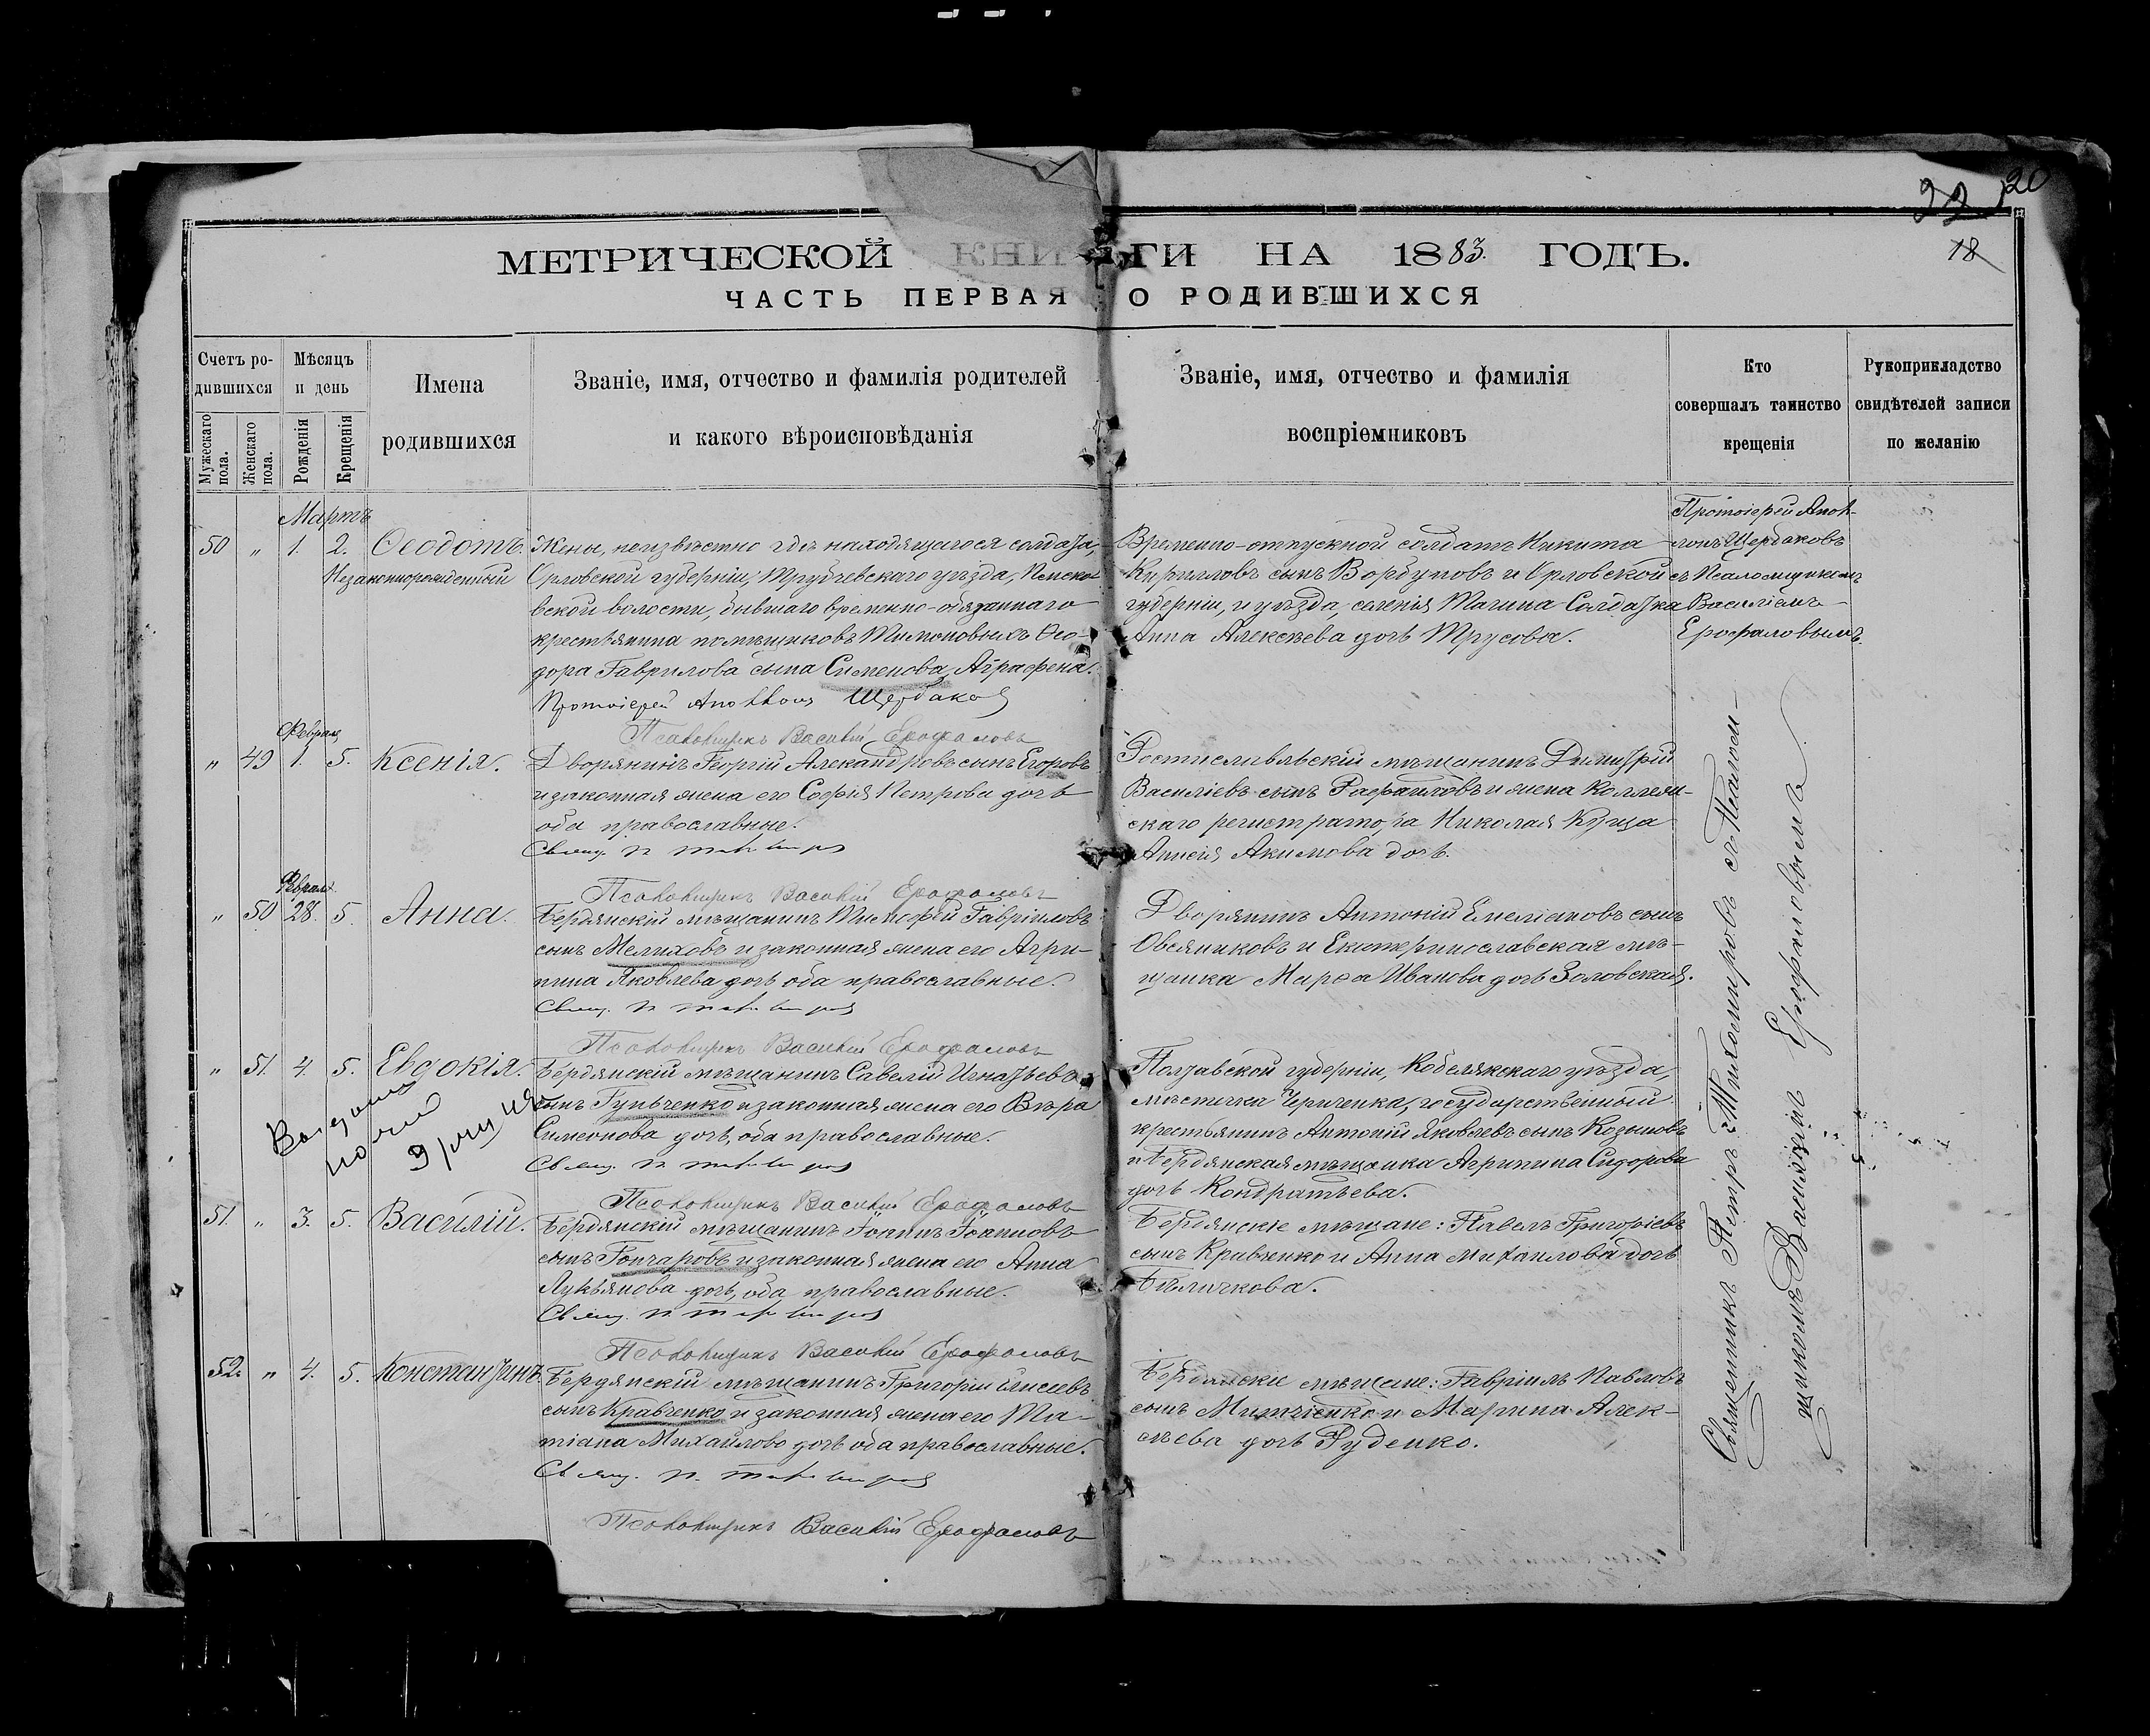 20
22
18
МЕТРИЧЕСКОЙ КНИГИ НА 1883. ГОДЪ.
ЧАСТЬ ПЕРВАЯ О РОДИВШИХСЯ
Счетъ ро-
дившихся
Мужескаго пола.
Женскаго пола.
Мѣсяцъ
и день
Рожденія
Крещенія
Имена
родившихся
Званіе, имя, отчество и фамилія родителей
и какого вѣроисповѣданія
Званіе, имя, отчество и фамилія
воспріемниковъ
Кто
совершалъ таинство
крещенія
Рукоприкладство
свидѣтелей записи
по желанію
Мартъ
50 " 1. 2. Ѳеодотъ.
Незаконнорожденный
Жены, неизвѣстно гдѣ находящагося солдата,
Орловской губерніи, Трубчевскаго уѣзда,
вской волости, бывшаго временно-обязаннаго
крестьянина помѣщиковъ Тимоновыхъ Ѳео-
дора Гаврилова сына Сименова, Аграфена.
Протоіерей Аполлонъ Щербаковъ
Псаломщикъ Василій Ерофаловъ
Временно-отпускной солдатъ Никита
Кирилловъ сынъ Ворбуновъ и Орловской
губерніи, и уѣзда, селенія Тагина Солдатка
Анна Алексѣева дочь Трусова.
Протоіерей Апол-
лонъ Щербаковъ
съ Псаломщикомъ
Василіемъ
Ерофаловымъ.
Февраля
" 49 1. 5. Ксенія.
Дворянинъ Георгій Александровъ сынъ Егоровъ
и законная жена его Софія Петрова дочь
оба православные.
Свящ. П. Тихомировъ
Псаломщикъ Василій Ерофаловъ
Ростиславльскій мѣщанинъ Димитрій
Василіевъ сынъ Рафаиловъ и жена Коллеж-
скаго регистратора Николая Куца
Анисія Акимова дочь.
Февраля
" 50 28. 5. Анна.
Бердянскій мѣщанинъ Тимофей Гавріиловъ
сынъ Мелиховъ и законная жена его Агри-
пина Яковлева дочь оба православные.
Свящ. П. Тихомировъ
Псаломщикъ Василій Ерофаловъ
Дворянинъ Антоній Емеліановъ сынъ
Овсяниковъ и Екатеринославская мѣ-
щанка Марѳа Иванова дочь Золовская.
" 51. 4. 5. Евдокія.
Бердянскій мѣщанинъ Савелій Игнатьевъ
сынъ Гунченко и законная жена его Вѣра
Симеонова дочь, оба православные.
Свящ. П. Тихомировъ
Псаломщикъ Василій Ерофаловъ
Полтавской губерніи, Кобелякскаго уѣзда,
мѣстечка государственный
крестьянинъ Антоній Яковлевъ сынъ Козыновъ
и Бердянская мѣщанка Агрипина Сидорова
дочь Кондратьева.
51. " 3. 5. Василій.
Бердянскій мѣщанинъ Іоаннъ Іоанновъ
сынъ Гончаровъ и законная жена его Анна
Лукьянова дочь, оба православные.
Свящ. П. Тихомировъ
Псаломщикъ Василій Ерофаловъ
Бердянскіе мѣщане: Павелъ Григоріевъ
сынъ Кривченко и Анна Михаилова дочь
Бѣличкова.
52. " 4. 5. Константинъ.
Бердянскій мѣщанинъ Григорій Елисеевъ
сынъ Кравченко и законная жена его Та-
тіана Михайлова дочь оба православные.
Свящ. П. Тихомировъ
Псаломщикъ Василій Ерофаловъ
Бердянскіе мѣщане: Гавріилъ Павловъ
сынъ и Марина Алек-
сѣева дочь Руденко.
Священникъ Петръ Тихомировъ съ Псалом-
щикомъ Василіемъ Ерофаловымъ.